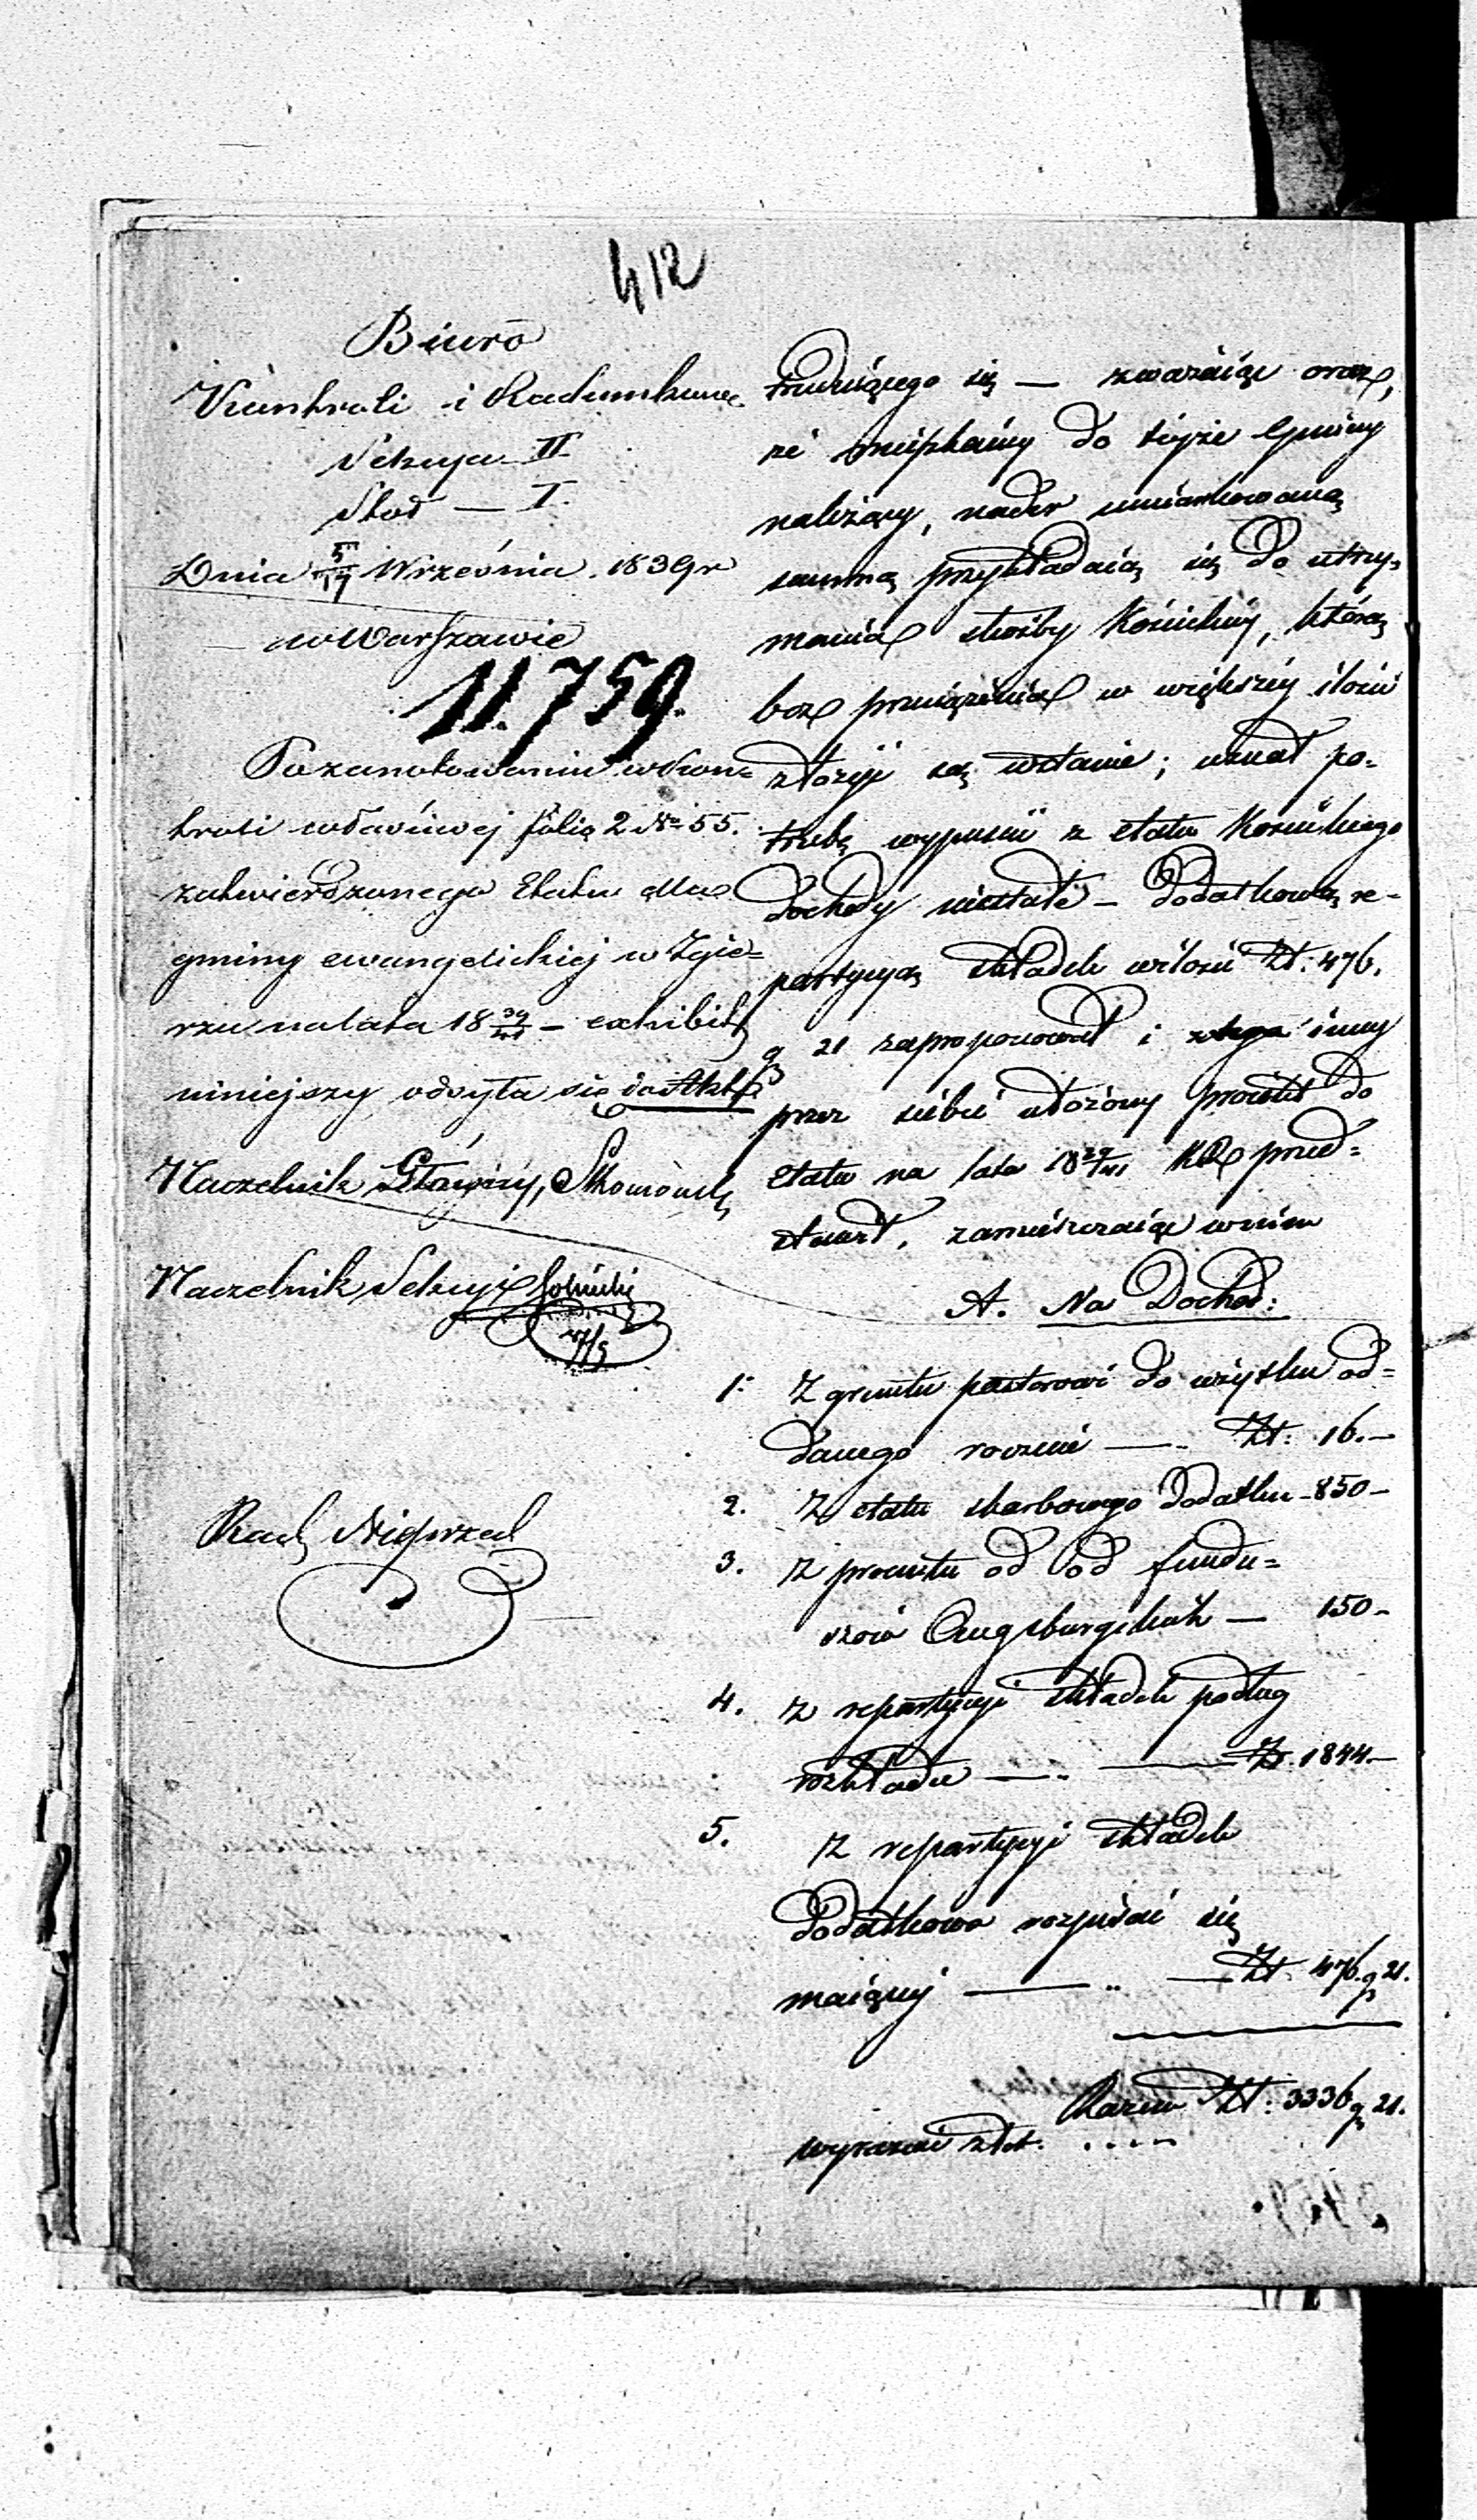 412
Biuro
Kontroli i Rachunkowe
Sekcya II
Stoł — I.
Dnia 5/17 Września 1839 r
w Warszawie
11.759.
Po zanotowaniu w kon=
troli właściwej folio 2 No 55.
zatwierdzonego Etatu dla
gminy ewangelickiej w Zgie=
rzu na lata 18 39/41 – exhibit
niniejszy odsyła się do Akt
Naczelnik Główny,
Naczelnik Sekcyi
17/9
Rach
trudniącego się — zważaiąc oraz,
że mieszkańcy do tejże Gminy
należący, nader umiarkowaną
summą przykładaią się do utrzy=
mania służby Kościelnej, którą
bez przeciążenia w większej ilości
złożyć są w stanie; uznał po=
trzebę wypuścić z etatu Kościelnego
dochody niestałe – dodatkową re=
partycyą składek w ilości Zł: 476.
g 21 zaproponował i inny
przez siebie ułożony proiekt do
etatu na lata 18 39/41 KR przed=
stawił, zamieszczaiąc w nim
A. Na Dochód:
1. Z gruntu pastorowi do użytku od=
danego rocznie — Zł: 16.–
2. Z etatu skarbowego dodatku – 850 –
3. Z procentu od od fundu=
szów Augsburgskich — 150 –
4. Z repartycyi składek podług
rozkładu — Zł. 1844.–
5. Z repartycyi składek
dodatkowo rozpisać się
maiącej — Zł: 476 g 21.
Razem Zł: 3336 g 21.
wyraźnie złot. ....